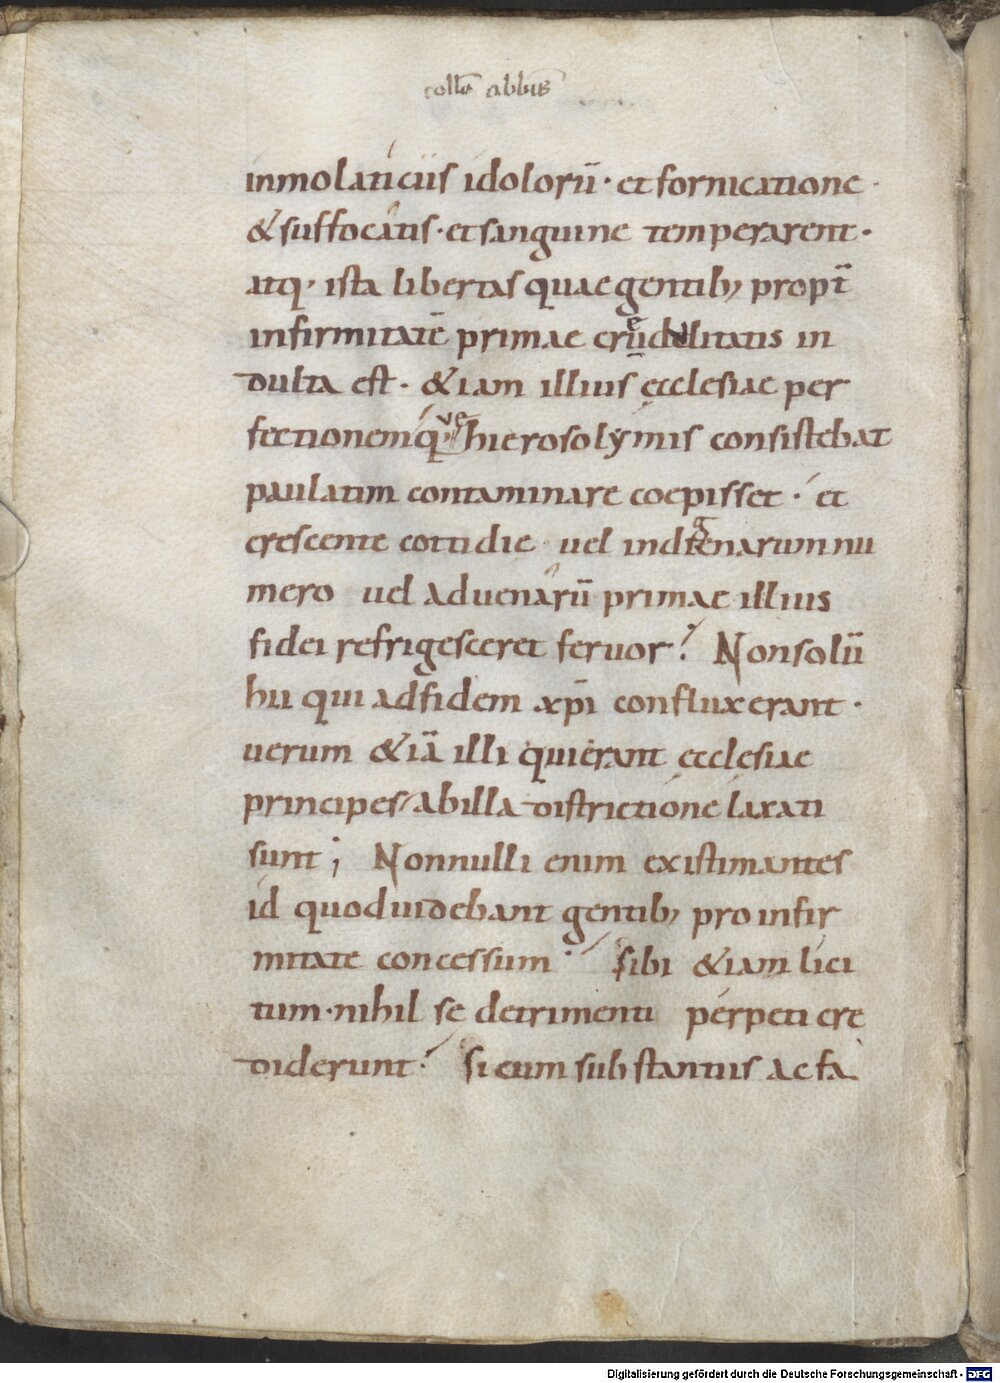 colł abbīs
inmolaticiis idolorū· et fornicatione·
&suffocatis· et sanguine temperarent·
atq· ista libertas quae gentib; propt̄
infirmitatē primae crudelitatis in
dulta est· &iam illius ecclesiae per
fectionem quę hierosolymis consistebat
paulatim contaminare coepisset· et
crescente cottidie vel indigenarum nu
mero vel advenarū primae illius
fidei refrigesceret fervor: Non solū
hii qui ad fidem xp̄i confluxerant·
verum &iā illi qui erant ecclesiae
principes ab illa districtione laxati
sunt; Nonnulli enim existimantes
id quod videbant gentib; pro infir
mitate concessum· sibi &iam lici
tum· nihil se detrimenti perpeti cre
diderunt· si cum substantiis ac fa
Digitalisierung gefördert durch die Deutsche Forschungsgemeinschaft - DFG